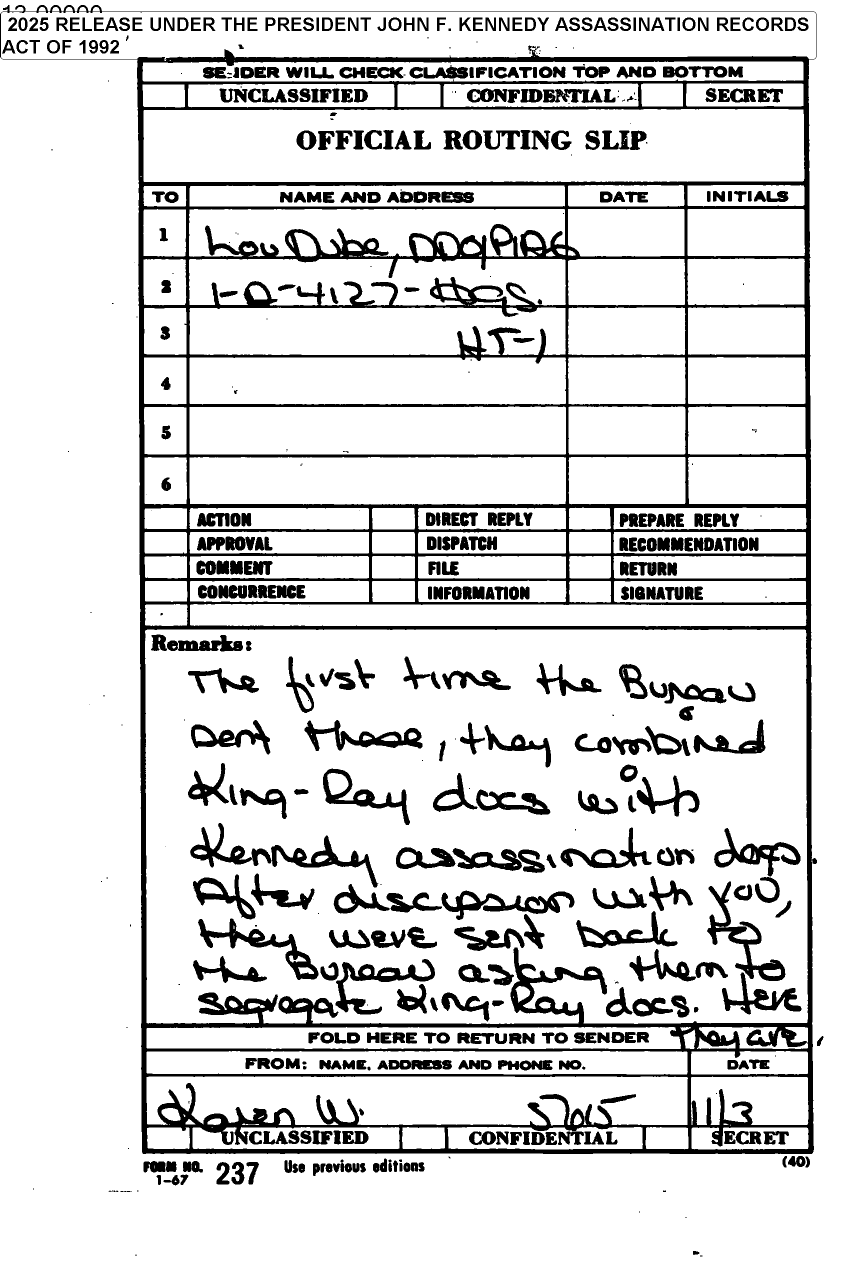 2025 RELEASE UNDER THE PRESIDENT JOHN F. KENNEDY ASSASSINATION RECORDS
ACT OF 1992
SENDER WILL CHECK CLASSIFICATION TOP AND BOTTOM
UNCLASSIFIED CONFIDENTIAL SECRET
OFFICIAL ROUTING SLIP
TO NAME AND ADDRESS DATE INITIALS
1 Lou Dube, DDO/PIAG
2 1-D-4127-Hqs.
3 HT-1
4
5
6
ACTION DIRECT REPLY PREPARE REPLY
APPROVAL DISPATCH RECOMMENDATION
COMMENT FILE RETURN
CONCURRENCE INFORMATION SIGNATURE
Remarks:
The first time the Bureau
sent these, they combined
King-Ray docs with
Kennedy assassination docs.
After discussion with you,
they were sent back to
the Bureau asking them to
segregate King-Ray docs. Here
they are.
FOLD HERE TO RETURN TO SENDER
FROM: NAME, ADDRESS AND PHONE NO. DATE
Karen W. 11/3
UNCLASSIFIED CONFIDENTIAL SECRET
FORM NO. 237 Use previous editions (40)
1-67